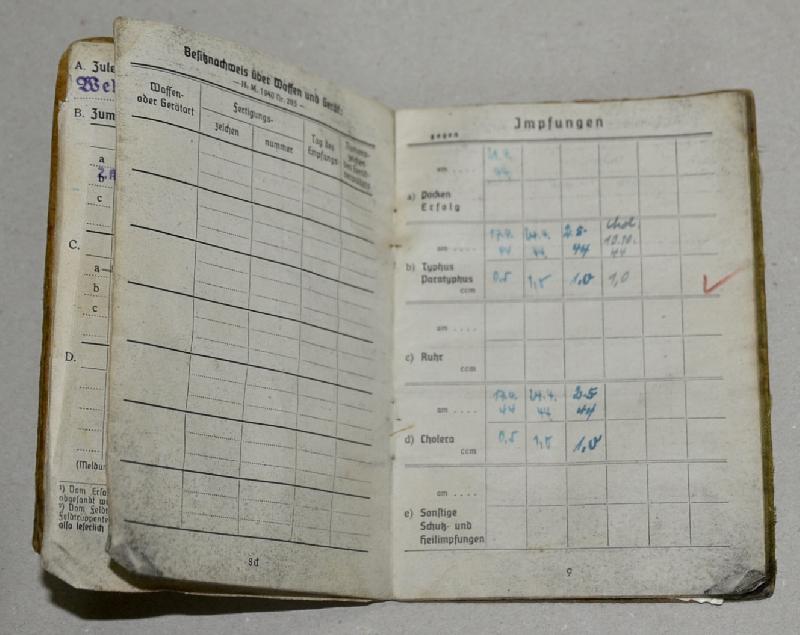 A. Zule
Wel
B. Zum
a
b
c
C.
a
b
c
D.
(Meldu
¹) Dem Erso
abgesandt w
²) Dem Feld
Feldtruppente
also leserlich
Besitznachweis über Waffen und Gerät
— H. M. 1940 Nr. 285 —
Waffen-
oder Gerätart
Fertigungs-
zeichen
nummer
Tag des
Empfangs
8d
Impfungen
gegen
am ....
44
a) Pocken
Erfolg
am .... 17.4. 24.4. 2.5. Chol.
44 44 44 10.10. 44
b) Typhus
Paratyphus
ccm
0,5 1,0 1,0 1,0
am ....
c) Ruhr
ccm
am .... 17.4. 24.4. 2.5
44 44 44
d) Cholera
ccm
0,5 1,0 1,0
am ....
e) Sonstige
Schutz- und
Heilimpfungen
9